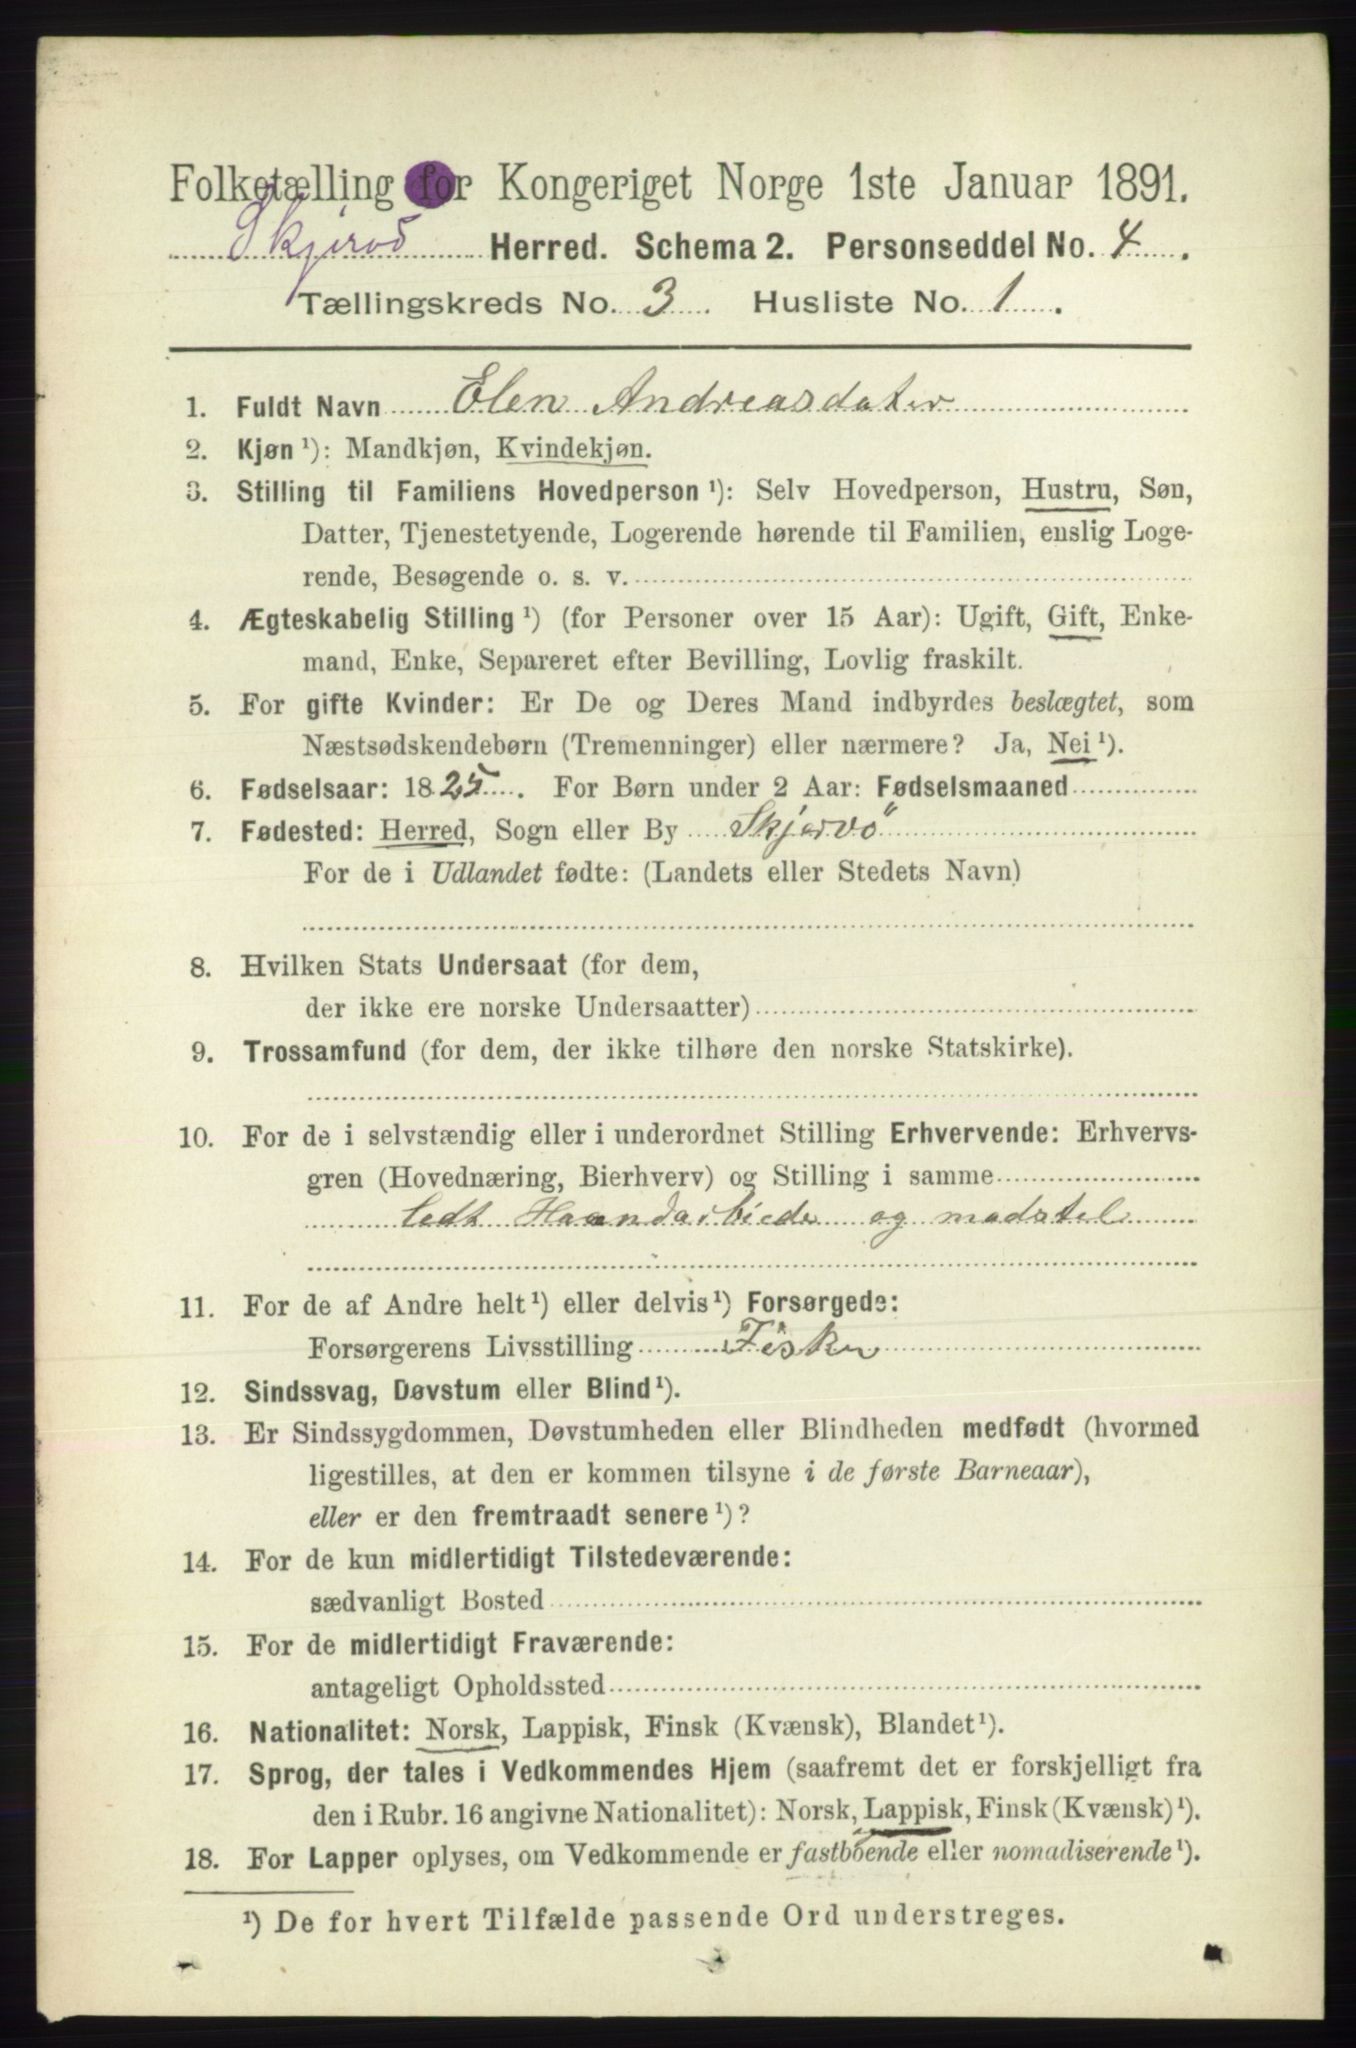 Folketælling for Kongeriget Norge 1ste Januar 1891.
Skjervö Herred. Schema 2. Personseddel No. 4.
Tællingskreds No. 3. Husliste No. 1.
1. Fuldt Navn Elen Andreasdater
2. Kjøn ¹): Mandkjøn, Kvindekjøn.
3. Stilling til Familiens Hovedperson ¹): Selv Hovedperson, Hustru, Søn,
Datter, Tjenestetyende, Logerende hørende til Familien, enslig Loge-
rende, Besøgende o. s. v.
4. Ægteskabelig Stilling ¹) (for Personer over 15 Aar): Ugift, Gift, Enke-
mand, Enke, Separeret efter Bevilling, Lovlig fraskilt.
5. For gifte Kvinder: Er De og Deres Mand indbyrdes beslægtet, som
Næstsødskendebørn (Tremenninger) eller nærmere? Ja, Nei ¹).
6. Fødselsaar: 1825. For Børn under 2 Aar: Fødselsmaaned
7. Fødested: Herred, Sogn eller By Skjervö
For de i Udlandet fødte: (Landets eller Stedets Navn)
8. Hvilken Stats Undersaat (for dem,
der ikke ere norske Undersaatter)
9. Trossamfund (for dem, der ikke tilhøre den norske Statskirke).
10. For de i selvstændig eller i underordnet Stilling Erhvervende: Erhvervs-
gren (Hovednæring, Bierhverv) og Stilling i samme
Ledt Haandarbiede og madstel
11. For de af Andre helt ¹) eller delvis ¹) Forsørgede:
Forsørgerens Livsstilling Fisker
12. Sindssvag, Døvstum eller Blind ¹).
13. Er Sindssygdommen, Døvstumheden eller Blindheden medfødt (hvormed
ligestilles, at den er kommen tilsyne i de første Barneaar),
eller er den fremtraadt senere ¹)?
14. For de kun midlertidigt Tilstedeværende:
sædvanligt Bosted
15. For de midlertidigt Fraværende:
antageligt Opholdssted
16. Nationalitet: Norsk, Lappisk, Finsk (Kvænsk), Blandet ¹).
17. Sprog, der tales i Vedkommendes Hjem (saafremt det er forskjelligt fra
den i Rubr. 16 angivne Nationalitet): Norsk, Lappisk, Finsk (Kvænsk) ¹).
18. For Lapper oplyses, om Vedkommende er fastboende eller nomadiserende ¹).
¹) De for hvert Tilfælde passende Ord understreges.